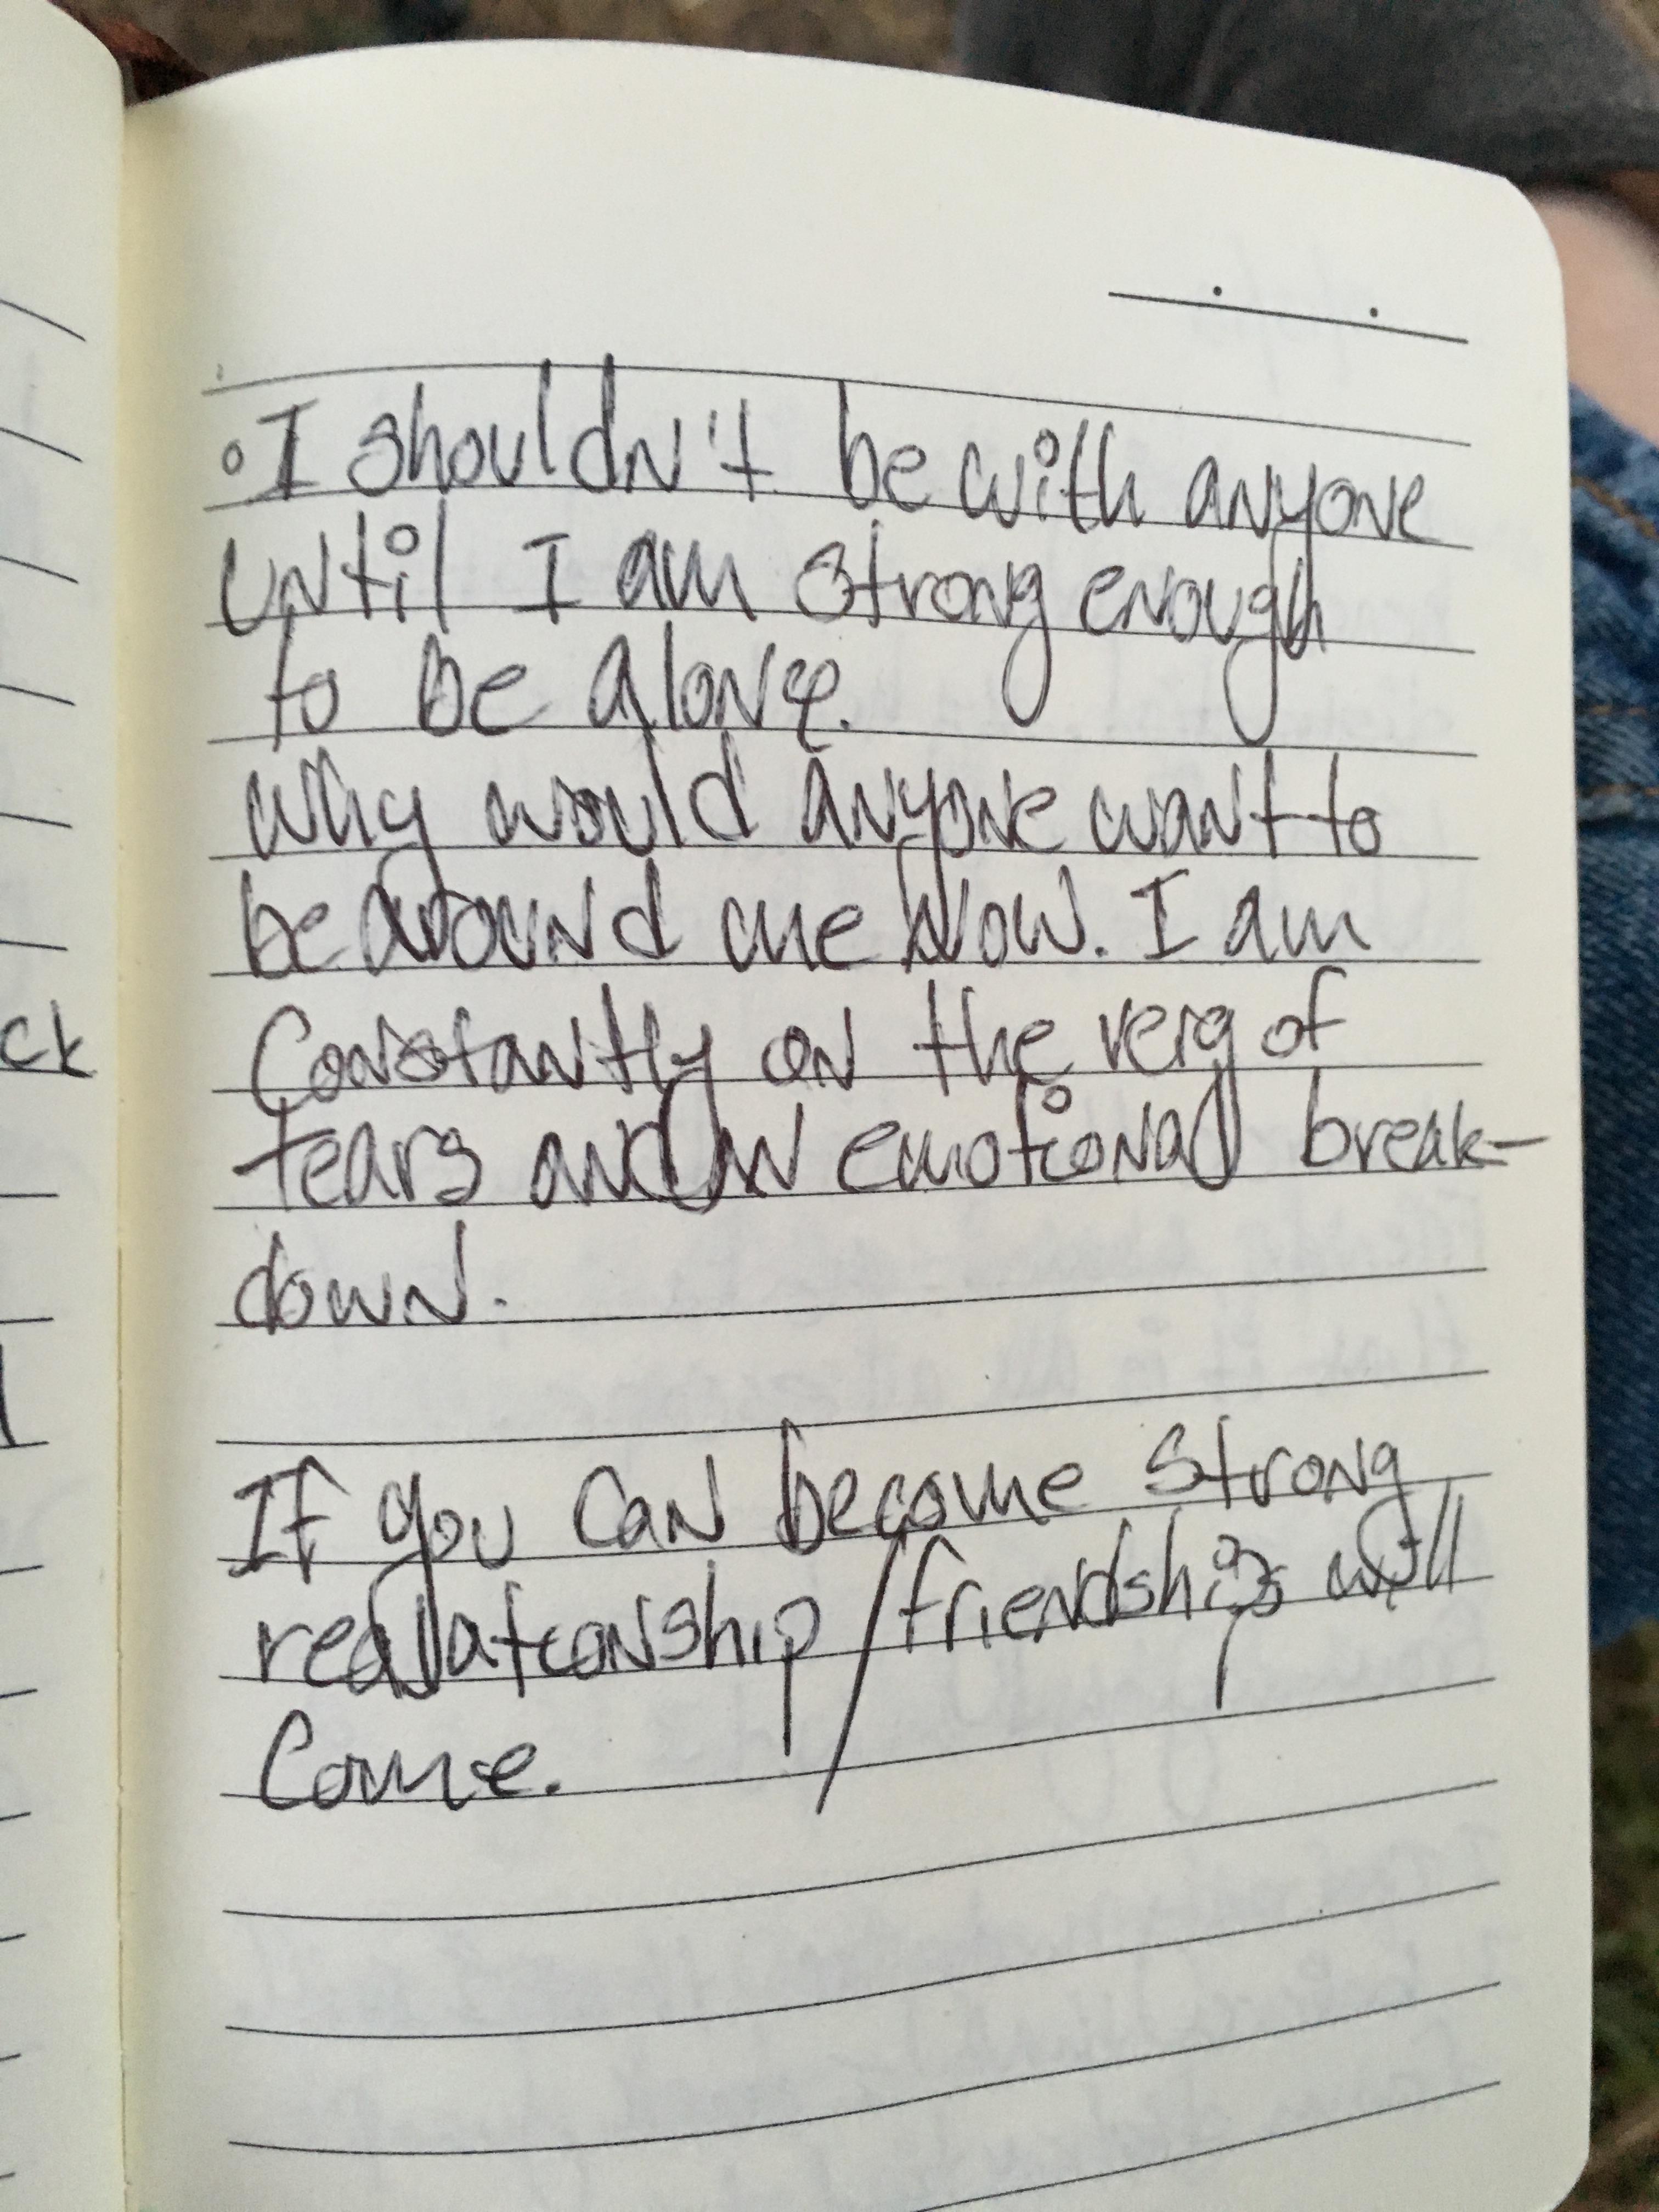 I shouldn't be with anyone
until I am strong enough
to be alone.
why would anyone want to
be around me Now. I am
Constantly on the verg of
tears and an emotional break-
down.
If you can become strong
realationship/friendships will
Come.
ck